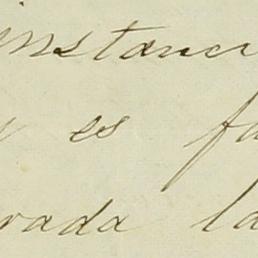 instanci
es fa
rada la